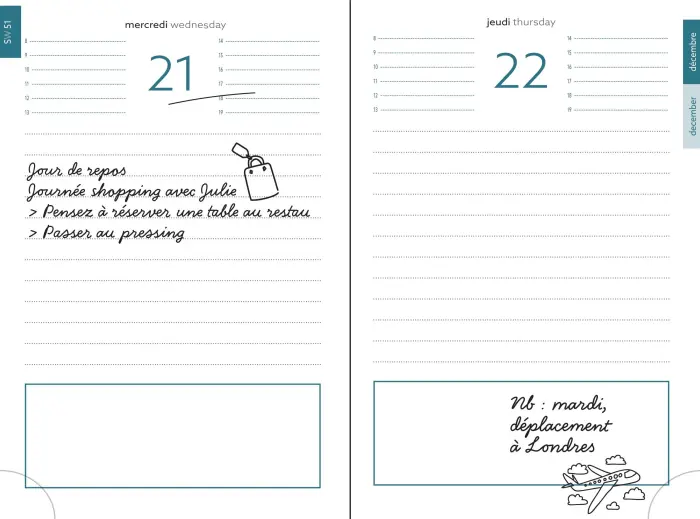 SW 51
mercredi wednesday
21
8
9
10
11
12
13
14
15
16
17
18
19
Jour de repos
Journée shopping avec Julie
> Pensez à réserver une table au restau
> Passer au pressing
jeudi thursday
22
8
9
10
11
12
13
14
15
16
17
18
19
Nb : mardi,
déplacement
à Londres
décembre
december